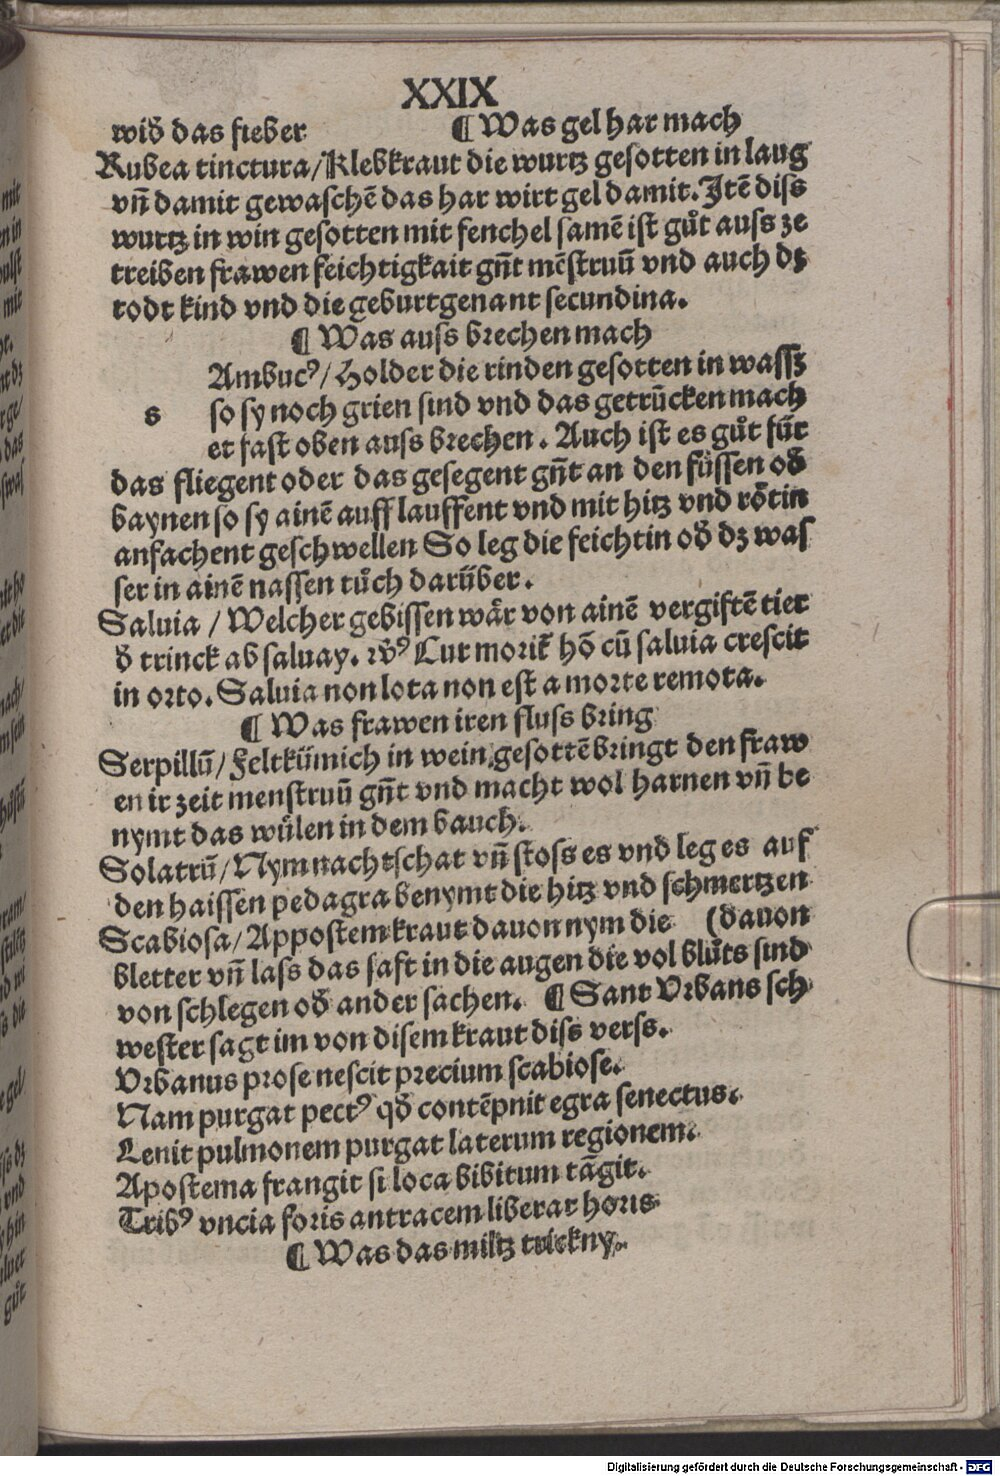 XXIX
wid̄ das fieber ¶ Was gel har mach
Rubea tinctura/Klebkraut die wurtz gesotten in laug
vn̄ damit gewaschē das har wirt gel damit. Itē diss
wurtz in win gesotten mit fenchel samē ist gůt auss ze
treiben frawen feichtigkait gn̄t mēstruū vnd auch dz
todt kind vnd die geburt genant secundina.
¶ Was auss brechen mach
Ambucꝰ/ Holder die rinden gesotten in wassz
s so sy noch grien sind vnd das getrūcken mach
et fast oben auss brechen. Auch ist es gůt für
das fliegent oder das gesegent gn̄t an den füssen od̄
baynen so sy ainē auff lauffent vnd mit hitz vnd rötin
anfachent geschwellen So leg die feichtin od̄ dz was
ser in ainē nassen tůch darüber.
Saluia / Welcher gebissen wär von ainē vergiftē tier
d̄ trinck ab saluay. Cur moriť hō cū saluia crescit
in orto. Saluia non lota non est a morte remota.
¶ Was frawen iren fluss bring
Serpillū/ Feltkümich in wein gesottē bringt den fraw
en ir zeit menstruū gn̄t vnd macht wol harnen vn̄ be
nymt das wülen in dem bauch.
Solatrū/ Nym nachtschat vn̄ stoss es vnd leg es auf
den haissen pedagra benymt die hitz vnd schmertzen
Scabiosa/ Appostemkraut dauon nym die (dauon
bletter vn̄ lass das saft in die augen die vol blůts sind
von schlegen od̄ ander sachen. ¶ Sant Vrbans sch
wester sagt im von disem kraut diss verss.
Vrbanus prose nescit precium scabiose.
Nam purgat pectꝰ qd̄ contēpnit egra senectus.
Lenit pulmonem purgat laterum regionem.
Apostema frangit si loca bibitum tāgit.
Tribꝰ vncia foris antracem liberat horis
¶ Was das miltz trickny.
Digitalisierung gefördert durch die Deutsche Forschungsgemeinschaft - DFG